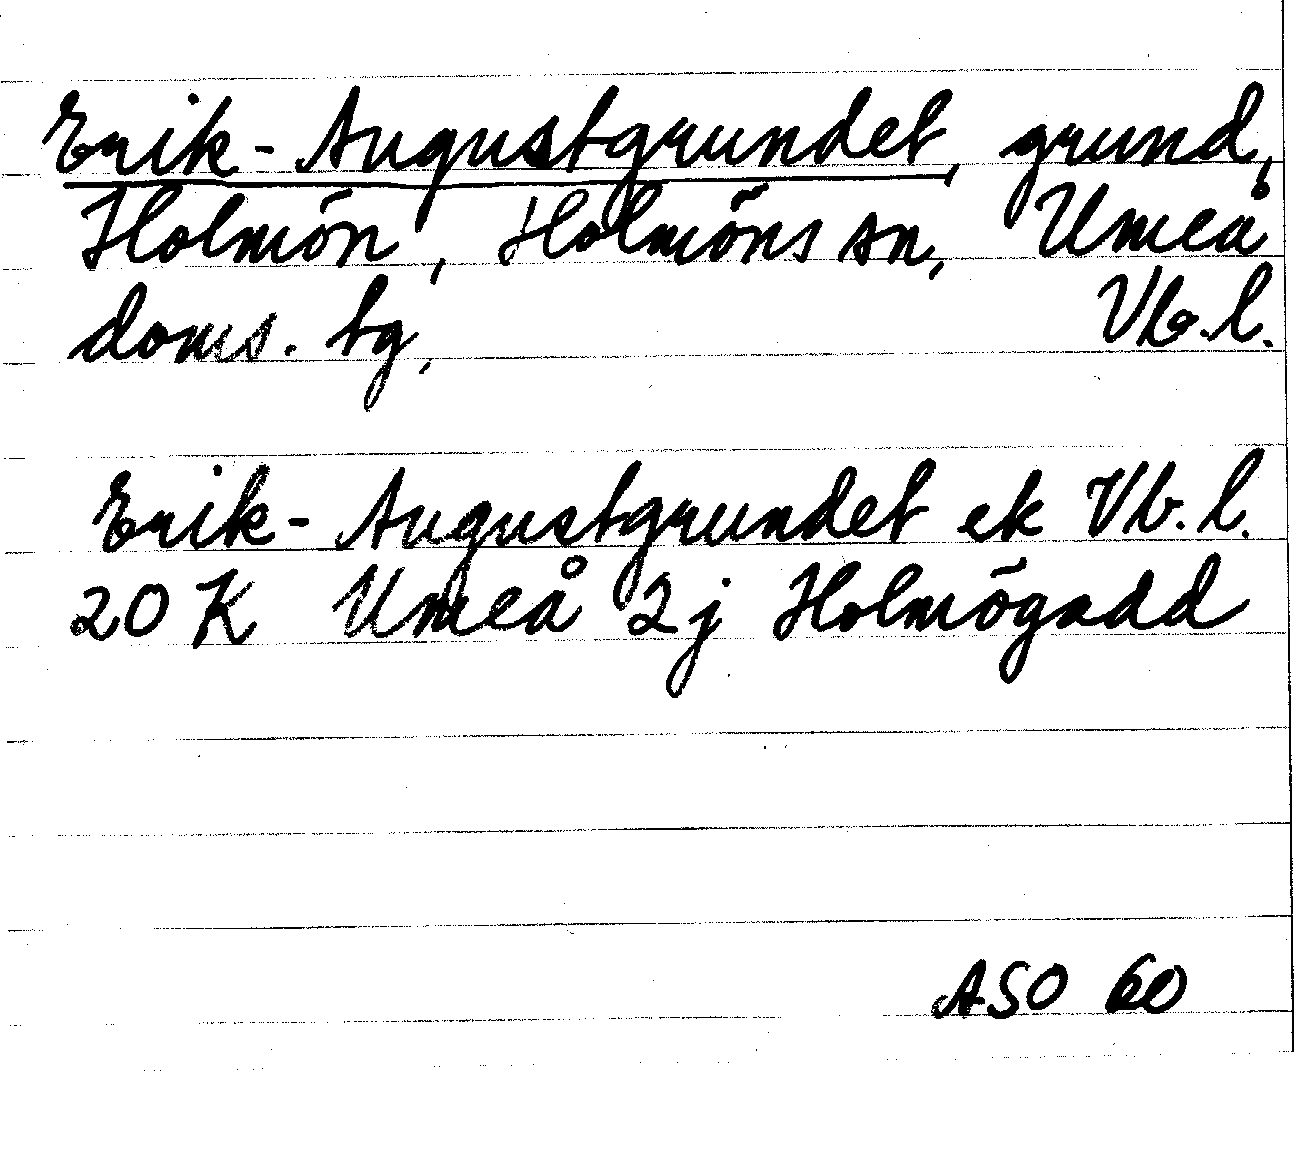 Erik-Augustgrundet, grund,
Holmön, Holmöns sn, Umeå
doms. tg, Vb.l.
Erik-Augustgrundet ek Vb.l.
20 K Umeå 2j Holmögadd
ASO 60